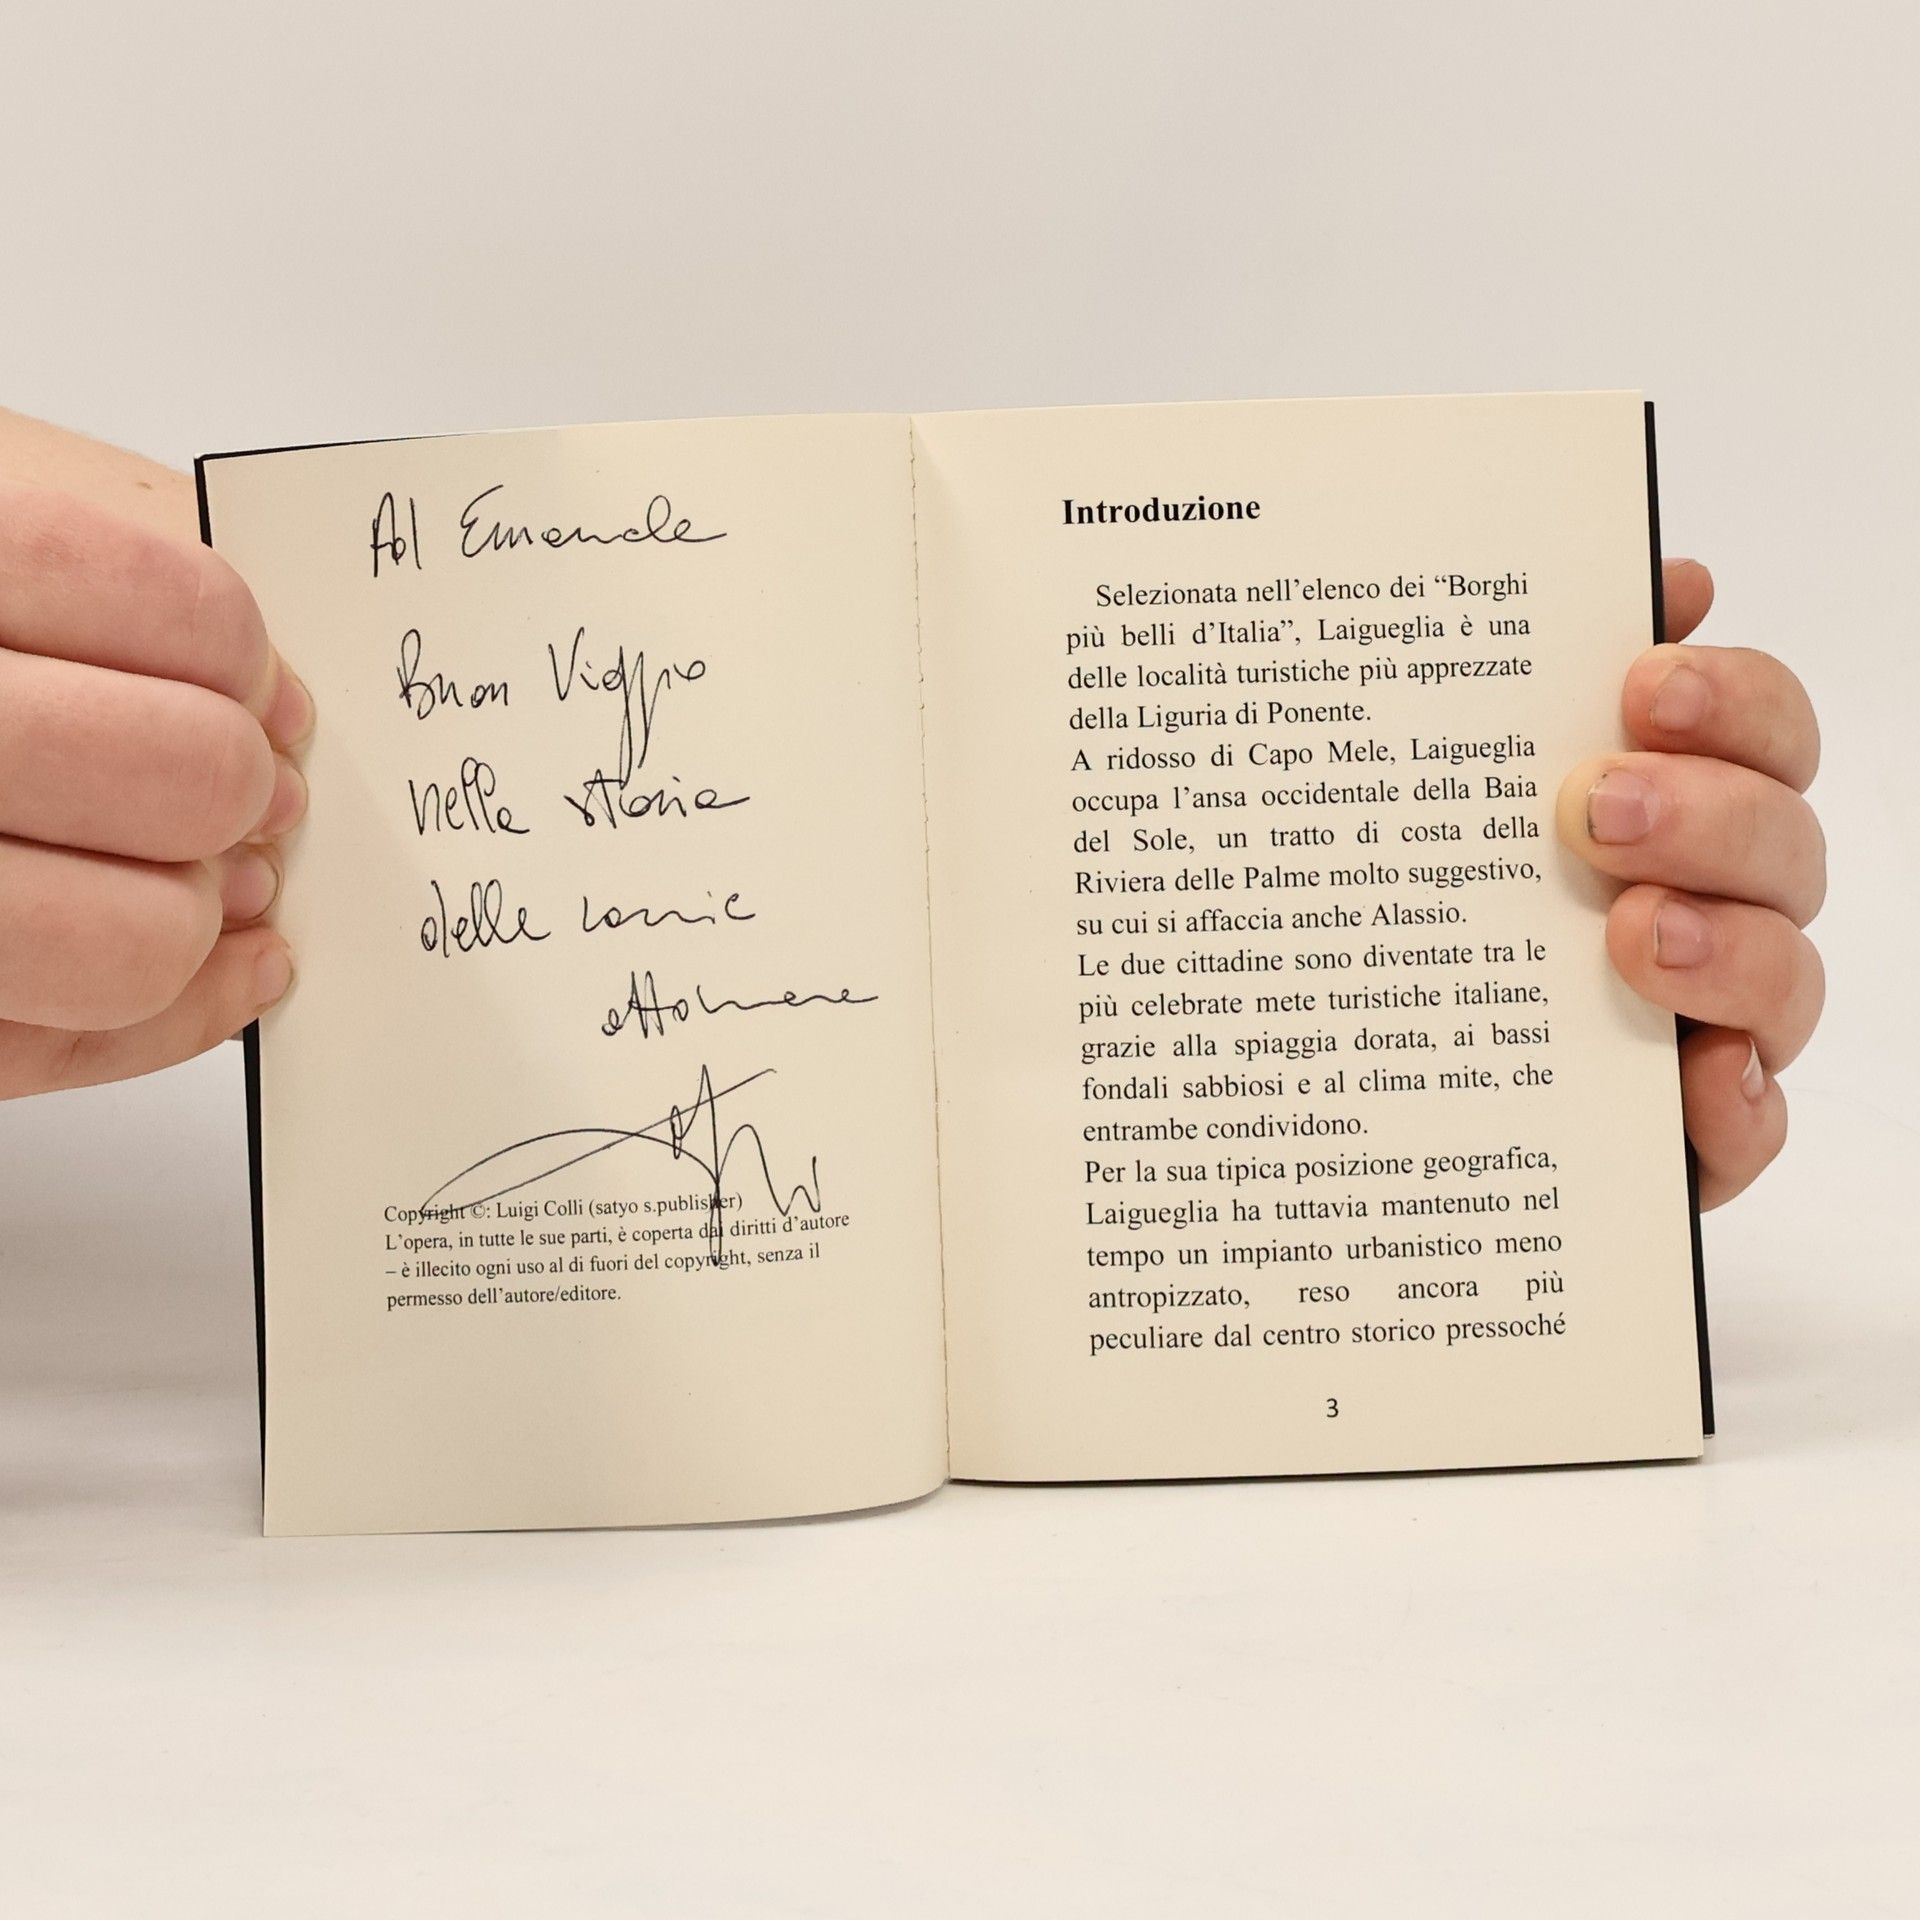 Ad Emanuele
Buon Viaggio
nella storia
delle
ottomane
Copyright ©: Luigi Colli (satyo s.publisher)
L’opera, in tutte le sue parti, è coperta dai diritti d’autore
– è illecito ogni uso al di fuori del copyright, senza il
permesso dell’autore/editore.
Introduzione
Selezionata nell’elenco dei “Borghi
più belli d’Italia”, Laigueglia è una
delle località turistiche più apprezzate
della Liguria di Ponente.
A ridosso di Capo Mele, Laigueglia
occupa l’ansa occidentale della Baia
del Sole, un tratto di costa della
Riviera delle Palme molto suggestivo,
su cui si affaccia anche Alassio.
Le due cittadine sono diventate tra le
più celebrate mete turistiche italiane,
grazie alla spiaggia dorata, ai bassi
fondali sabbiosi e al clima mite, che
entrambe condividono.
Per la sua tipica posizione geografica,
Laigueglia ha tuttavia mantenuto nel
tempo un impianto urbanistico meno
antropizzato, reso ancora più
peculiare dal centro storico pressoché
3